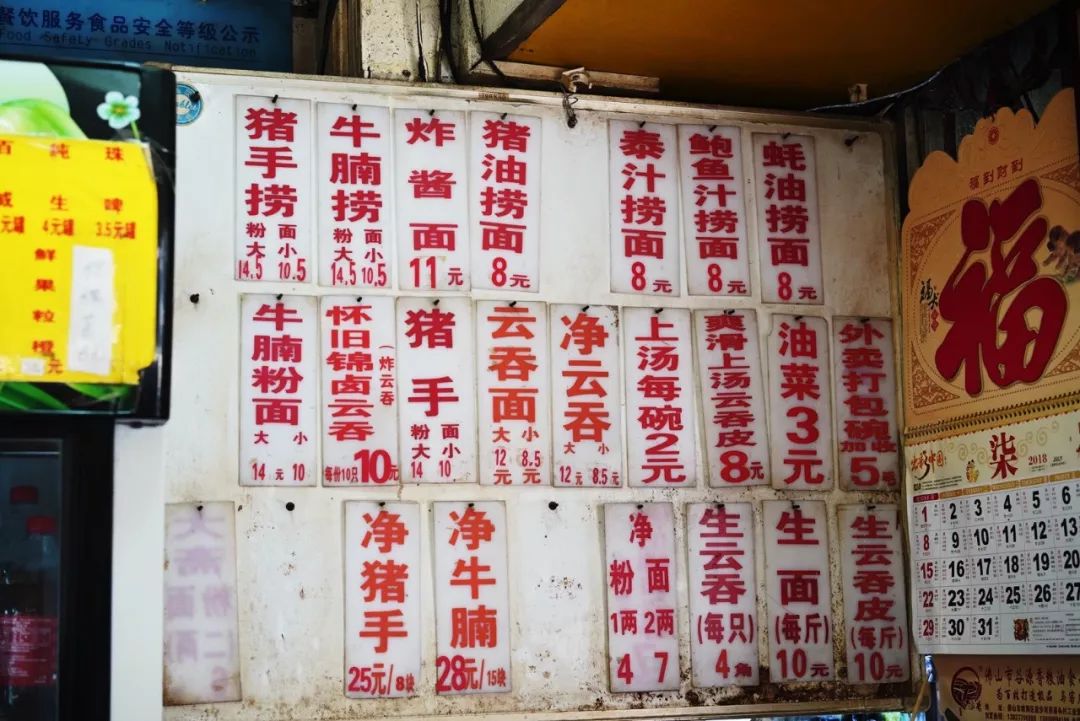 餐饮服务食品安全等级公示
Food Safety Grades Notification
百 純 珠
威 生 啤
4元罐 3.5元罐
鲜
果
粒
橙
猪手捞
粉 面
大 小
14.5 10.5
牛腩捞
粉 面
大 小
14.5 10.5
炸酱面
11元
猪油捞面
8元
泰汁捞面
8元
鲍鱼汁捞面
8元
蚝油捞面
8元
牛腩粉面
大 小
14元10
怀旧锦卤云吞
(炸云吞)
每份10只10元
猪手
粉 面
大 小
14 10
云吞面
大 小
12 8.5
元 元
净云吞
大 小
12元 8.5元
上汤每碗2元
爽滑上汤云吞皮
8元
油菜3元
外卖打包碗
加收
5毛
净猪手
25元/8块
净牛腩
28元/15块
净
粉 面
1两 2两
4 7
生云吞
(每只)
4角
生面
(每斤)
10元
生云吞皮
(每斤)
10元
福到财到
福
柒
2018
JULY
1 2 3 4 5 6
8 9 10 11 12 13
15 16 17 18 19 20
22 23 24 25 26 27
29 30 31